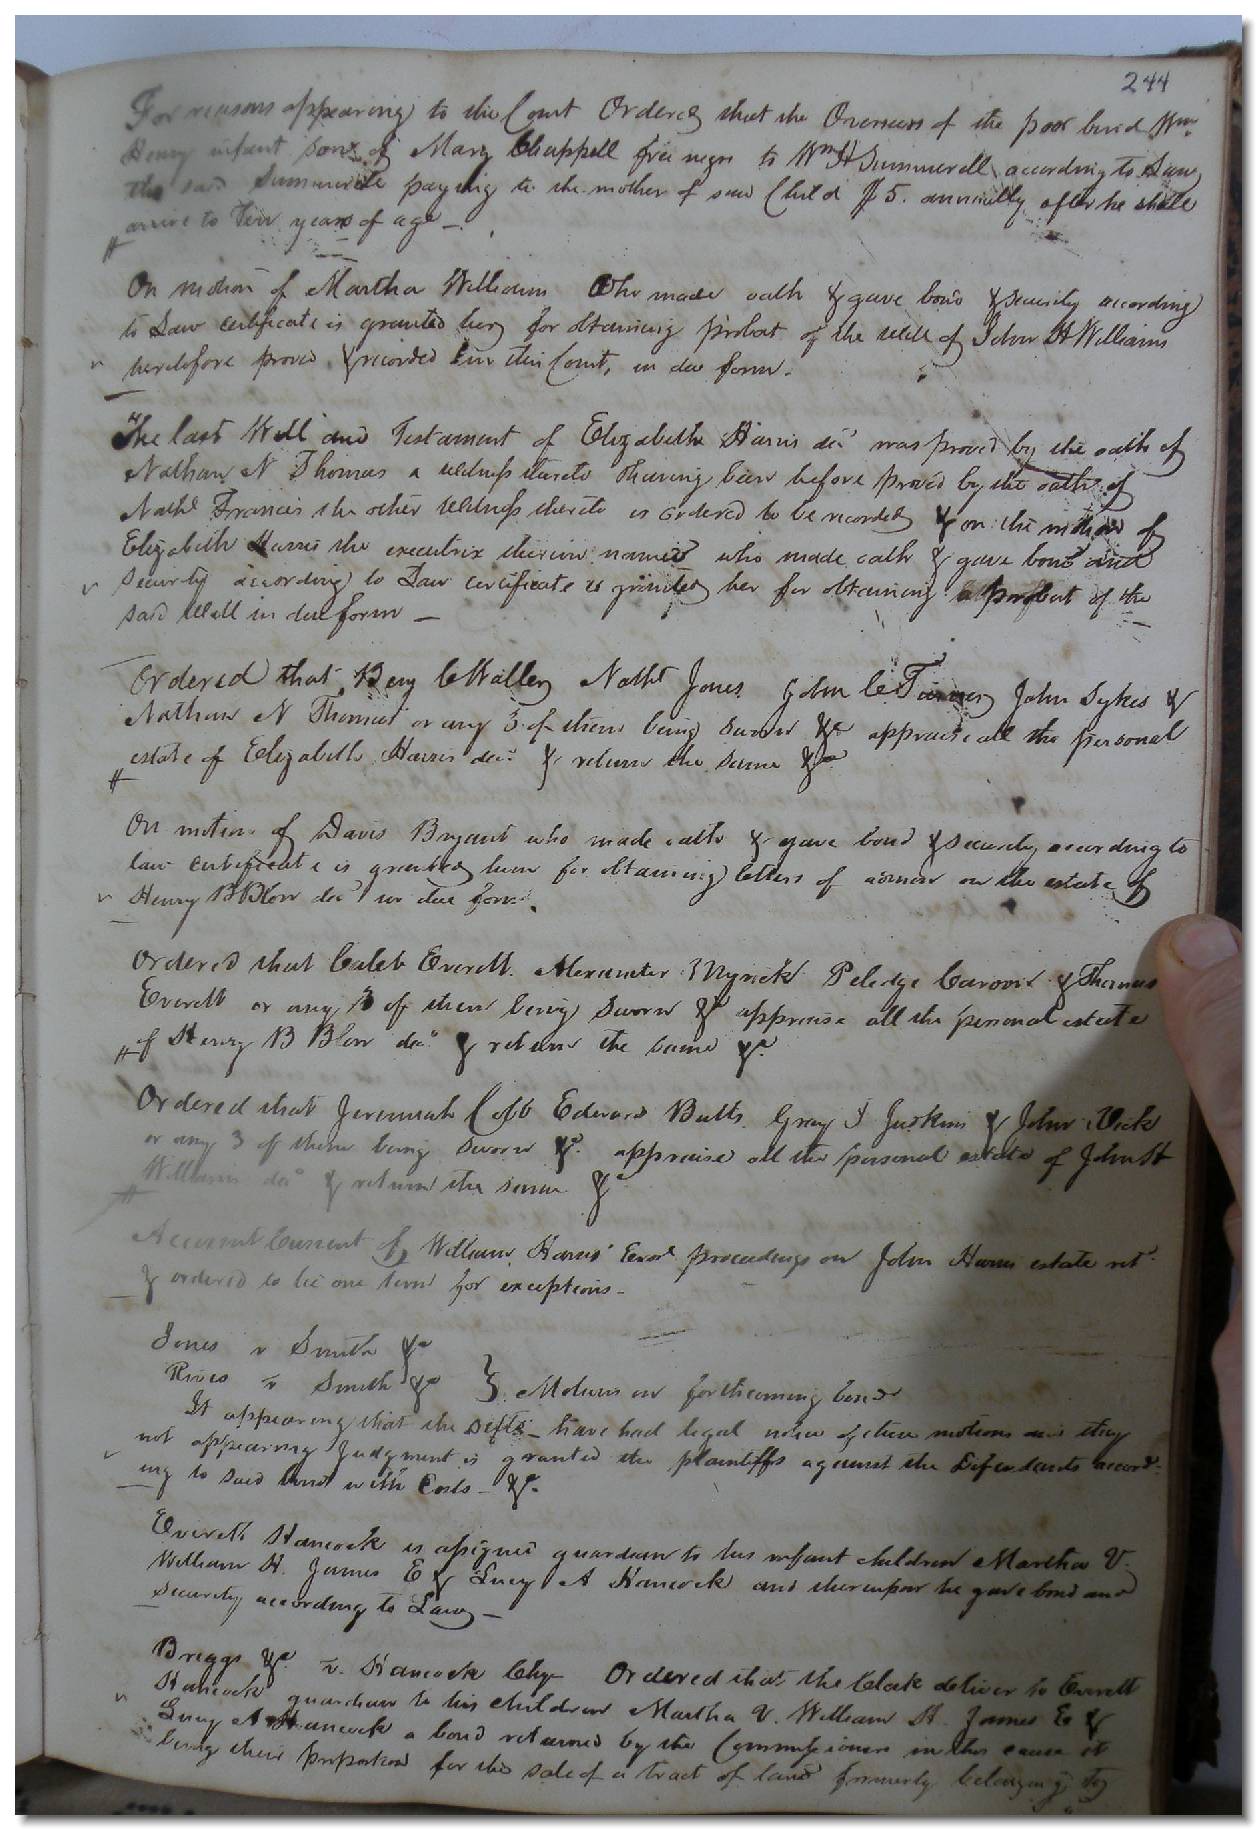 244
For reasons appearing to the Court Ordered that the Overseers of the poor bind Wm.
Henry infant son of Mary Chappell free negro to Wm H Summerell according to Law,
the said Summerell paying to the mother of said Child $5. annually after he shall
arrive to Ten years of age —
On motion of Martha Williams who made oath & gave bond & security according
to Law certificate is granted her for obtaining probat of the will of John H Williams
heretofore proved & recorded in this Court, in due form.
The last Will and Testament of Elizabeth Harris decd was proved by the oath of
Nathan N Thomas a witness thereto & having been before proved by the oath of
Nathl Francis the other witness thereto is ordered to be recorded & on the motion of
Elizabeth Harris the executrix therein named who made oath & gave bond and
security according to Law certificate is granted her for obtaining a probat of the
said Will in due form —
Ordered that Benj C Walley Nathl Jones John C Turner John Sykes &
Nathan N Thomas or any 3 of them being sworn &c appraise all the personal
estate of Elizabeth Harris decd & return the same &c
On motion of Davis Bryant who made oath & gave bond & security according to
law certificate is granted him for obtaining letters of admon on the estate of
Henry B Blow decd in due form.
Ordered that Caleb Everett. Alexander Myrick Peledge &Thomas
Everett or any 3 of them being sworn &c appraise all the personal estate
of Henry B Blow decd & return the same &c
Ordered that Jeremiah Cobb Edward Butts Gray J & John Vick
or any 3 of them being sworn &c. appraise all the personal estate of John H
Williams decd & return the same &c
Account Current of William Harris' Exor proceedings on John Harris estate retd.
& ordered to lie one term for exceptions —
Jones v Smith &c
Rives v Smith &c } Motions on forthcoming bonds
It appearing that the Defts — have had legal notice of these motions and they
not appearing judgment is granted the plaintiffs against the Defendants accord-
ing to said bond with Costs — &c.
Everett Hancock is assigned guardian to his infant children Martha V.
William H. James E & Lucy A Hancock and thereupon he gave bond and
security according to Law —
Briggs &c. v. Hancock Chy Ordered that the Clerk deliver to Everett
Hancock guardian to his children Martha V. William H. James E &
Lucy A Hancock a bond returned by the Commissioners in this cause it
being their proportion for the sale of a tract of land formerly belonging to